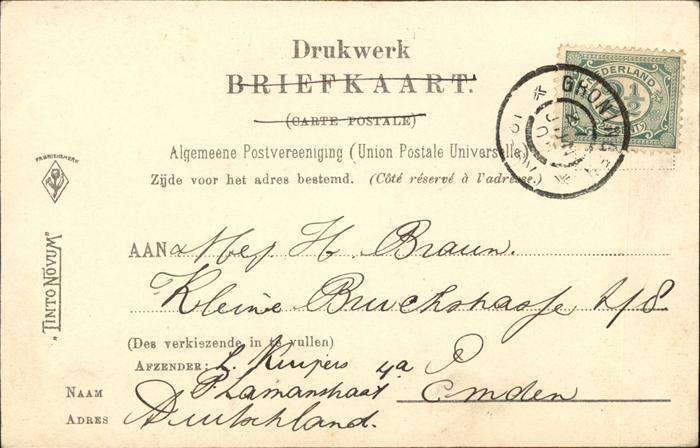 Drukwerk
BRIEFKAART.
(CARTE POSTALE)
Algemeene Postvereeniging (Union Postale Universelle)
Zijde voor het adres bestemd. (Côté réservé à l'adresse)
NEDERLAND
2½
CENT
GRONINGEN
FABRIEKSMERK
"TINTO NOVUM"
AAN Mej H. Braun.
Kleine Bruchstrasse 2/8
(Des verkiezende in te vullen)
AFZENDER: L. Kuipers 4a
NAAM P. Lamanstraat Emden
ADRES Deutschland.